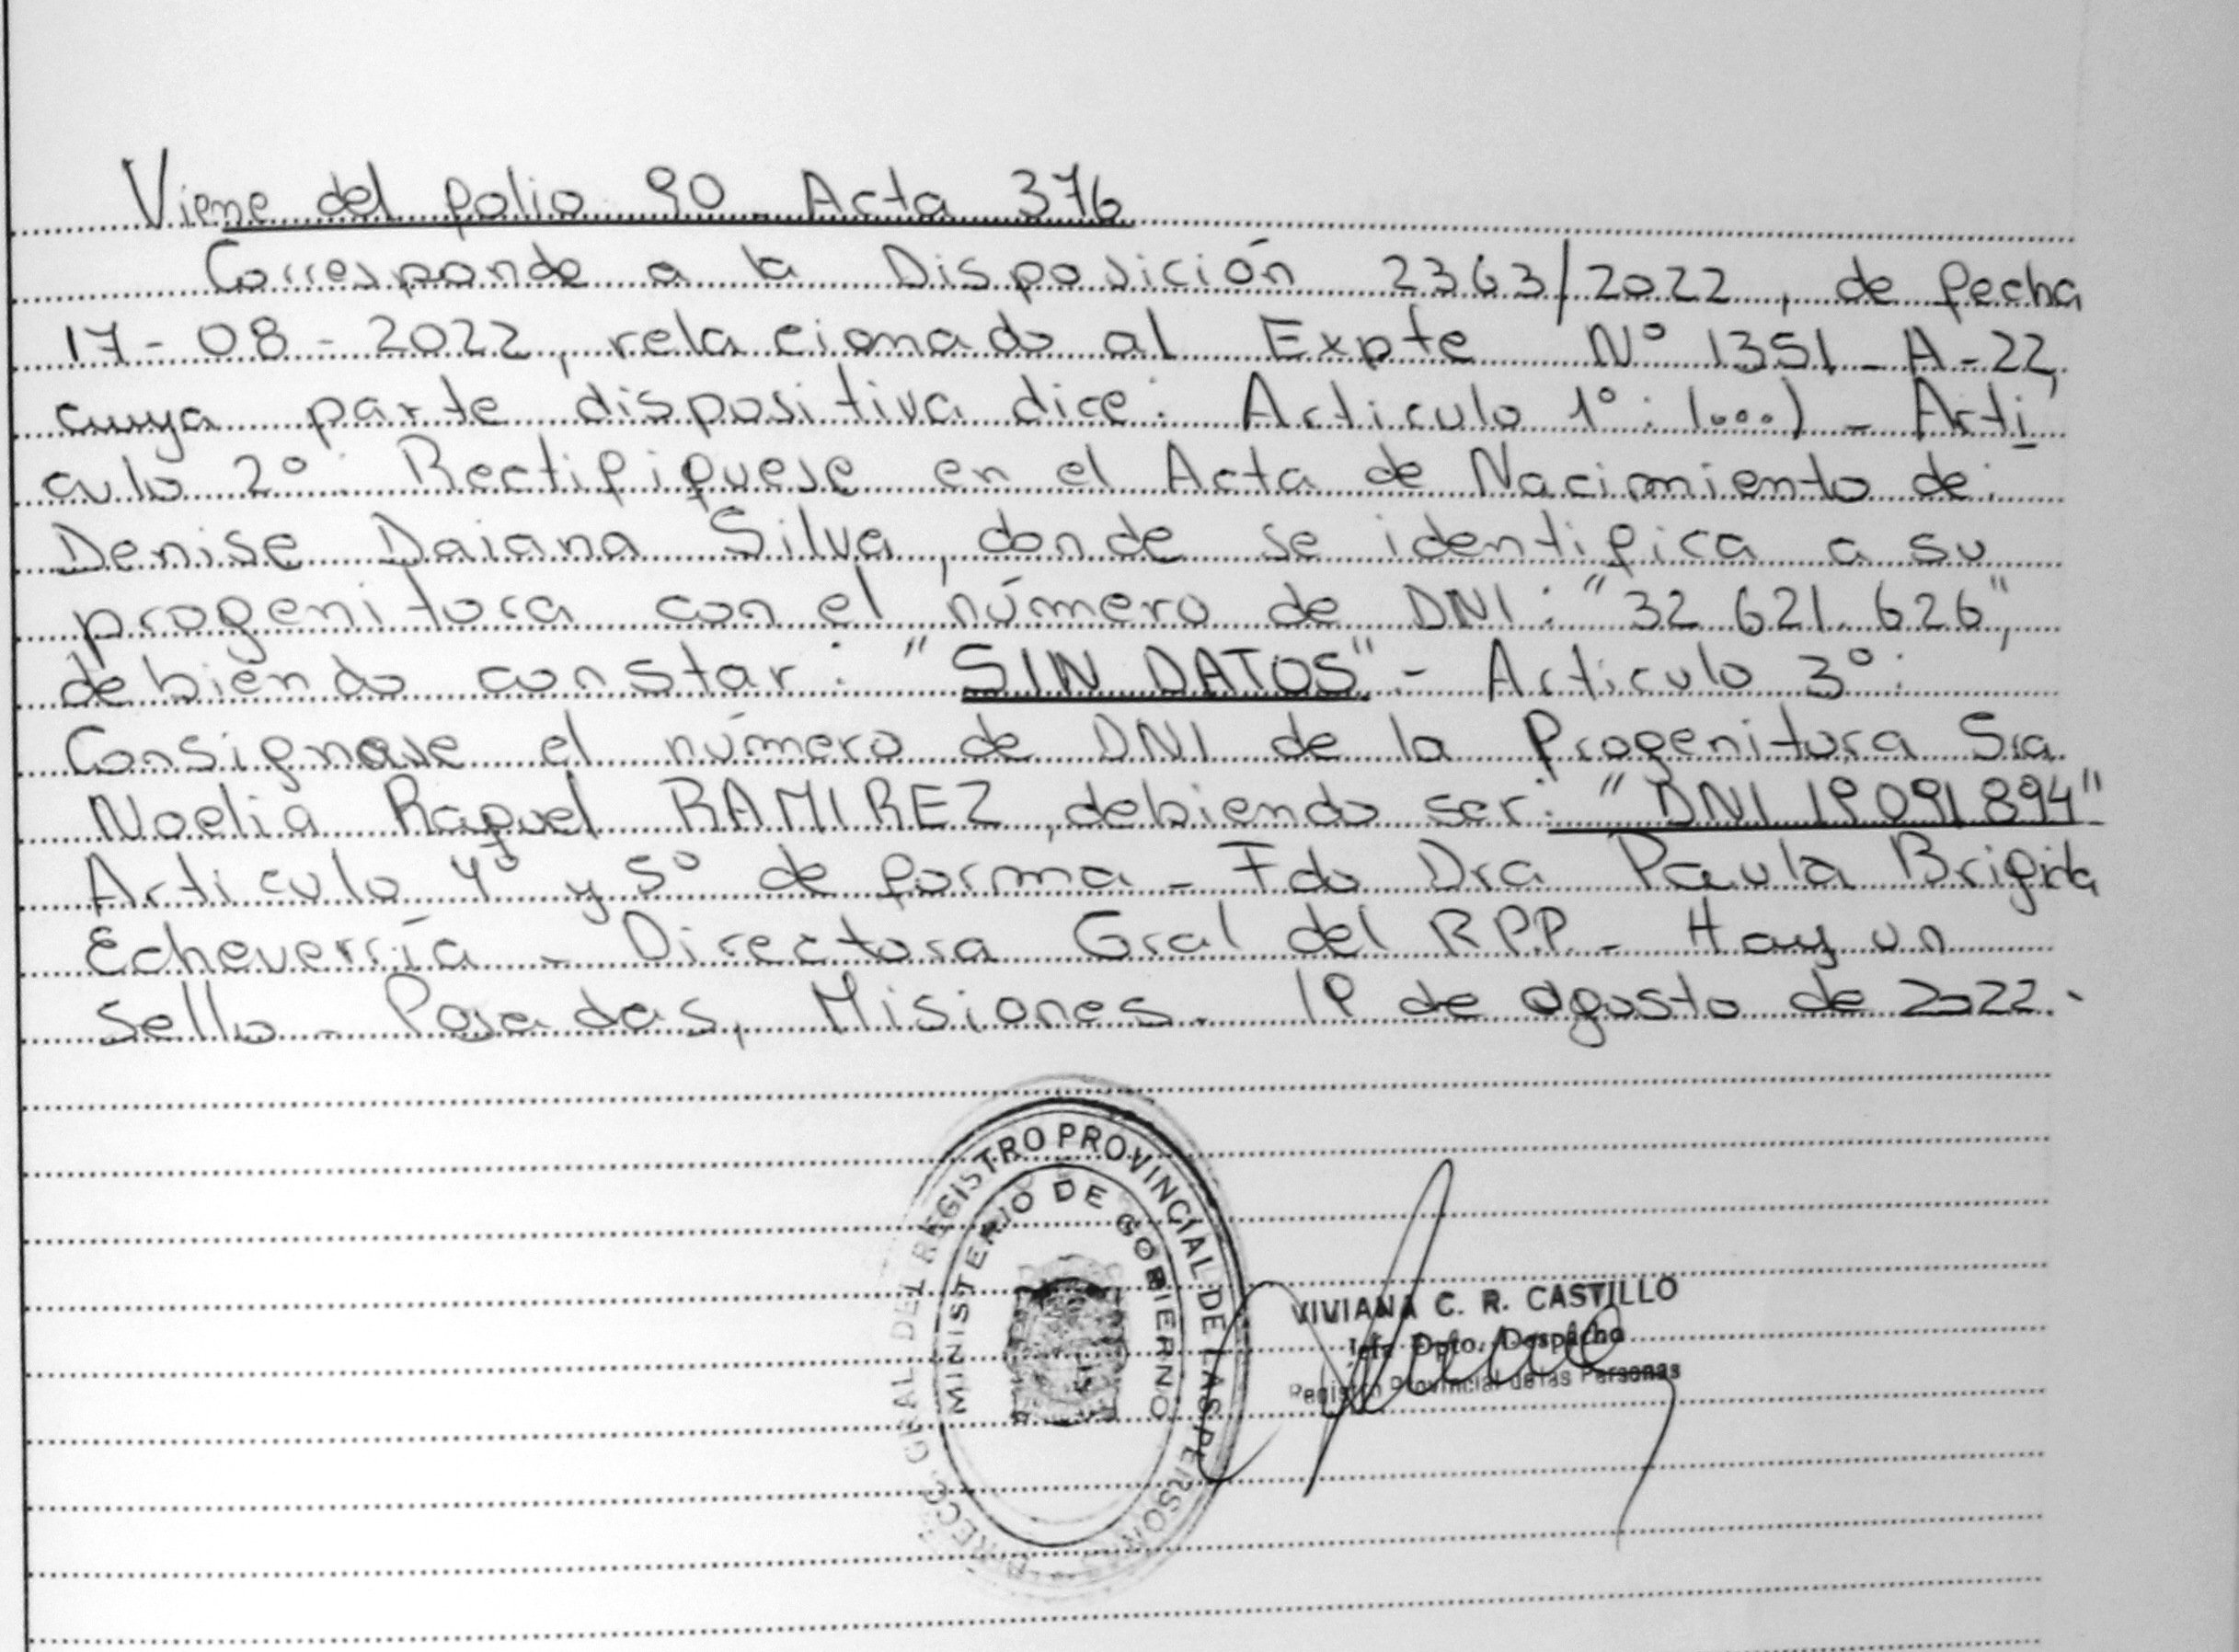 Viene del folio 90 - Acta 376
Corresponde a la Disposición 2363/2022, de fecha
17-08-2022, relacionado al Expte Nº 1351-A-22,
cuya parte dispositiva dice: Articulo 1º: (...) - Arti
culo 2º: Rectifiquese en el Acta de Nacimiento de:
Denise Daiana Silva, donde se identifica a su
progenitora con el número de DNI: "32.621.626",
debiendo constar: "SIN DATOS" - Articulo 3º:
Consignase el número de DNI de la Progenitora Sra
Noelia Raquel RAMIREZ, debiendo ser: "DNI 19.091.894"
Articulo 4º y 5º de forma - Fdo Dra Paula Brigida
Echeverría - Directora Gral del RPP - Hay un
sello - Posadas, Misiones. 19 de agosto de 2022.-
DIRECC. GRAL. DEL REGISTRO PROVINCIAL DE LAS PERSONAS
MINISTERIO DE GOBIERNO
VIVIANA C. R. CASTILLO
Jefa Dpto. Despacho
Registro Provincial de las Personas